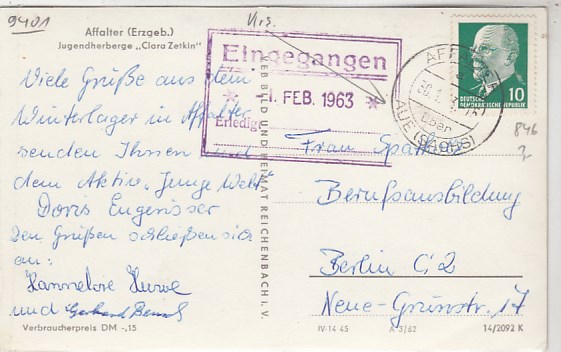 9401
Affalter (Erzgeb.)
Jugendherberge „Clara Zetkin"
Viele Grüße aus dem
Winterlager in Affalter
senden Ihnen mit
dem Aktiv „Junge Welt"
Doris
Den Grüßen schließen sich
an:
Hannelore
und Gerhard
Verbraucherpreis DM -,15
VEB BILD UND HEIMAT REICHENBACH I. V.
Eingegangen
1. FEB. 1963
Erledigt
AUE (SACHS)
10
DEUTSCHE
DEMOKRATISCHE REPUBLIK
846
Frau
Berufsausbildung
Berlin C 2
Neue-Grünstr. 17
IV-14 45 A 3/62 14/2092 K